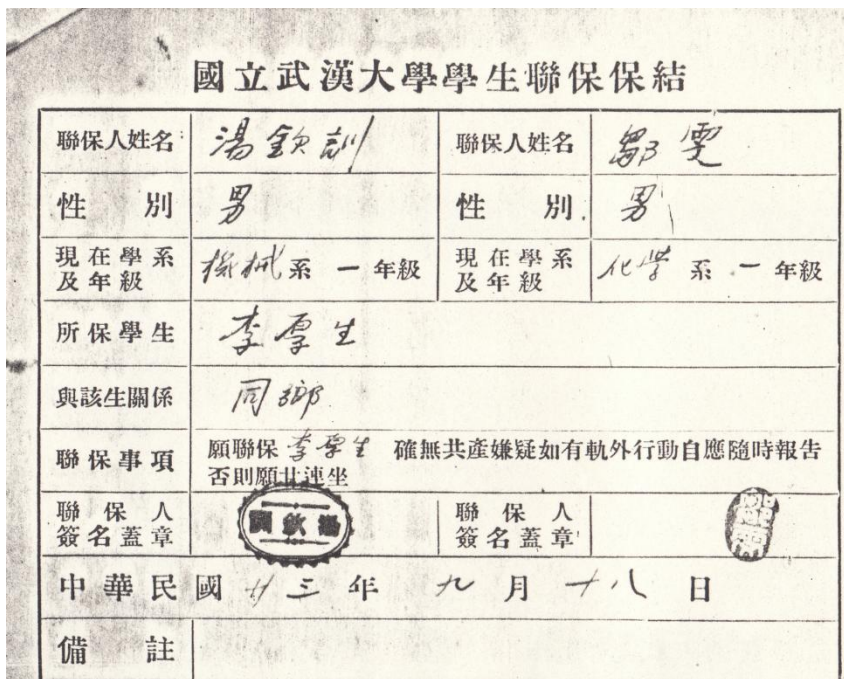 國立武漢大學學生聯保保結
聯保人姓名 湯欽訓 聯保人姓名 鄒雯
性別 男 性別 男
現在學系及年級 機械系 一年級 現在學系及年級 化学系 一年級
所保學生 李厚生
與該生關係 同鄉
聯保事項 願聯保李厚生 確無共產嫌疑如有軌外行動自應隨時報告
否則願甘連坐
聯保人簽名蓋章 湯欽訓 聯保人簽名蓋章
中華民國廿三年九月十八日
備註